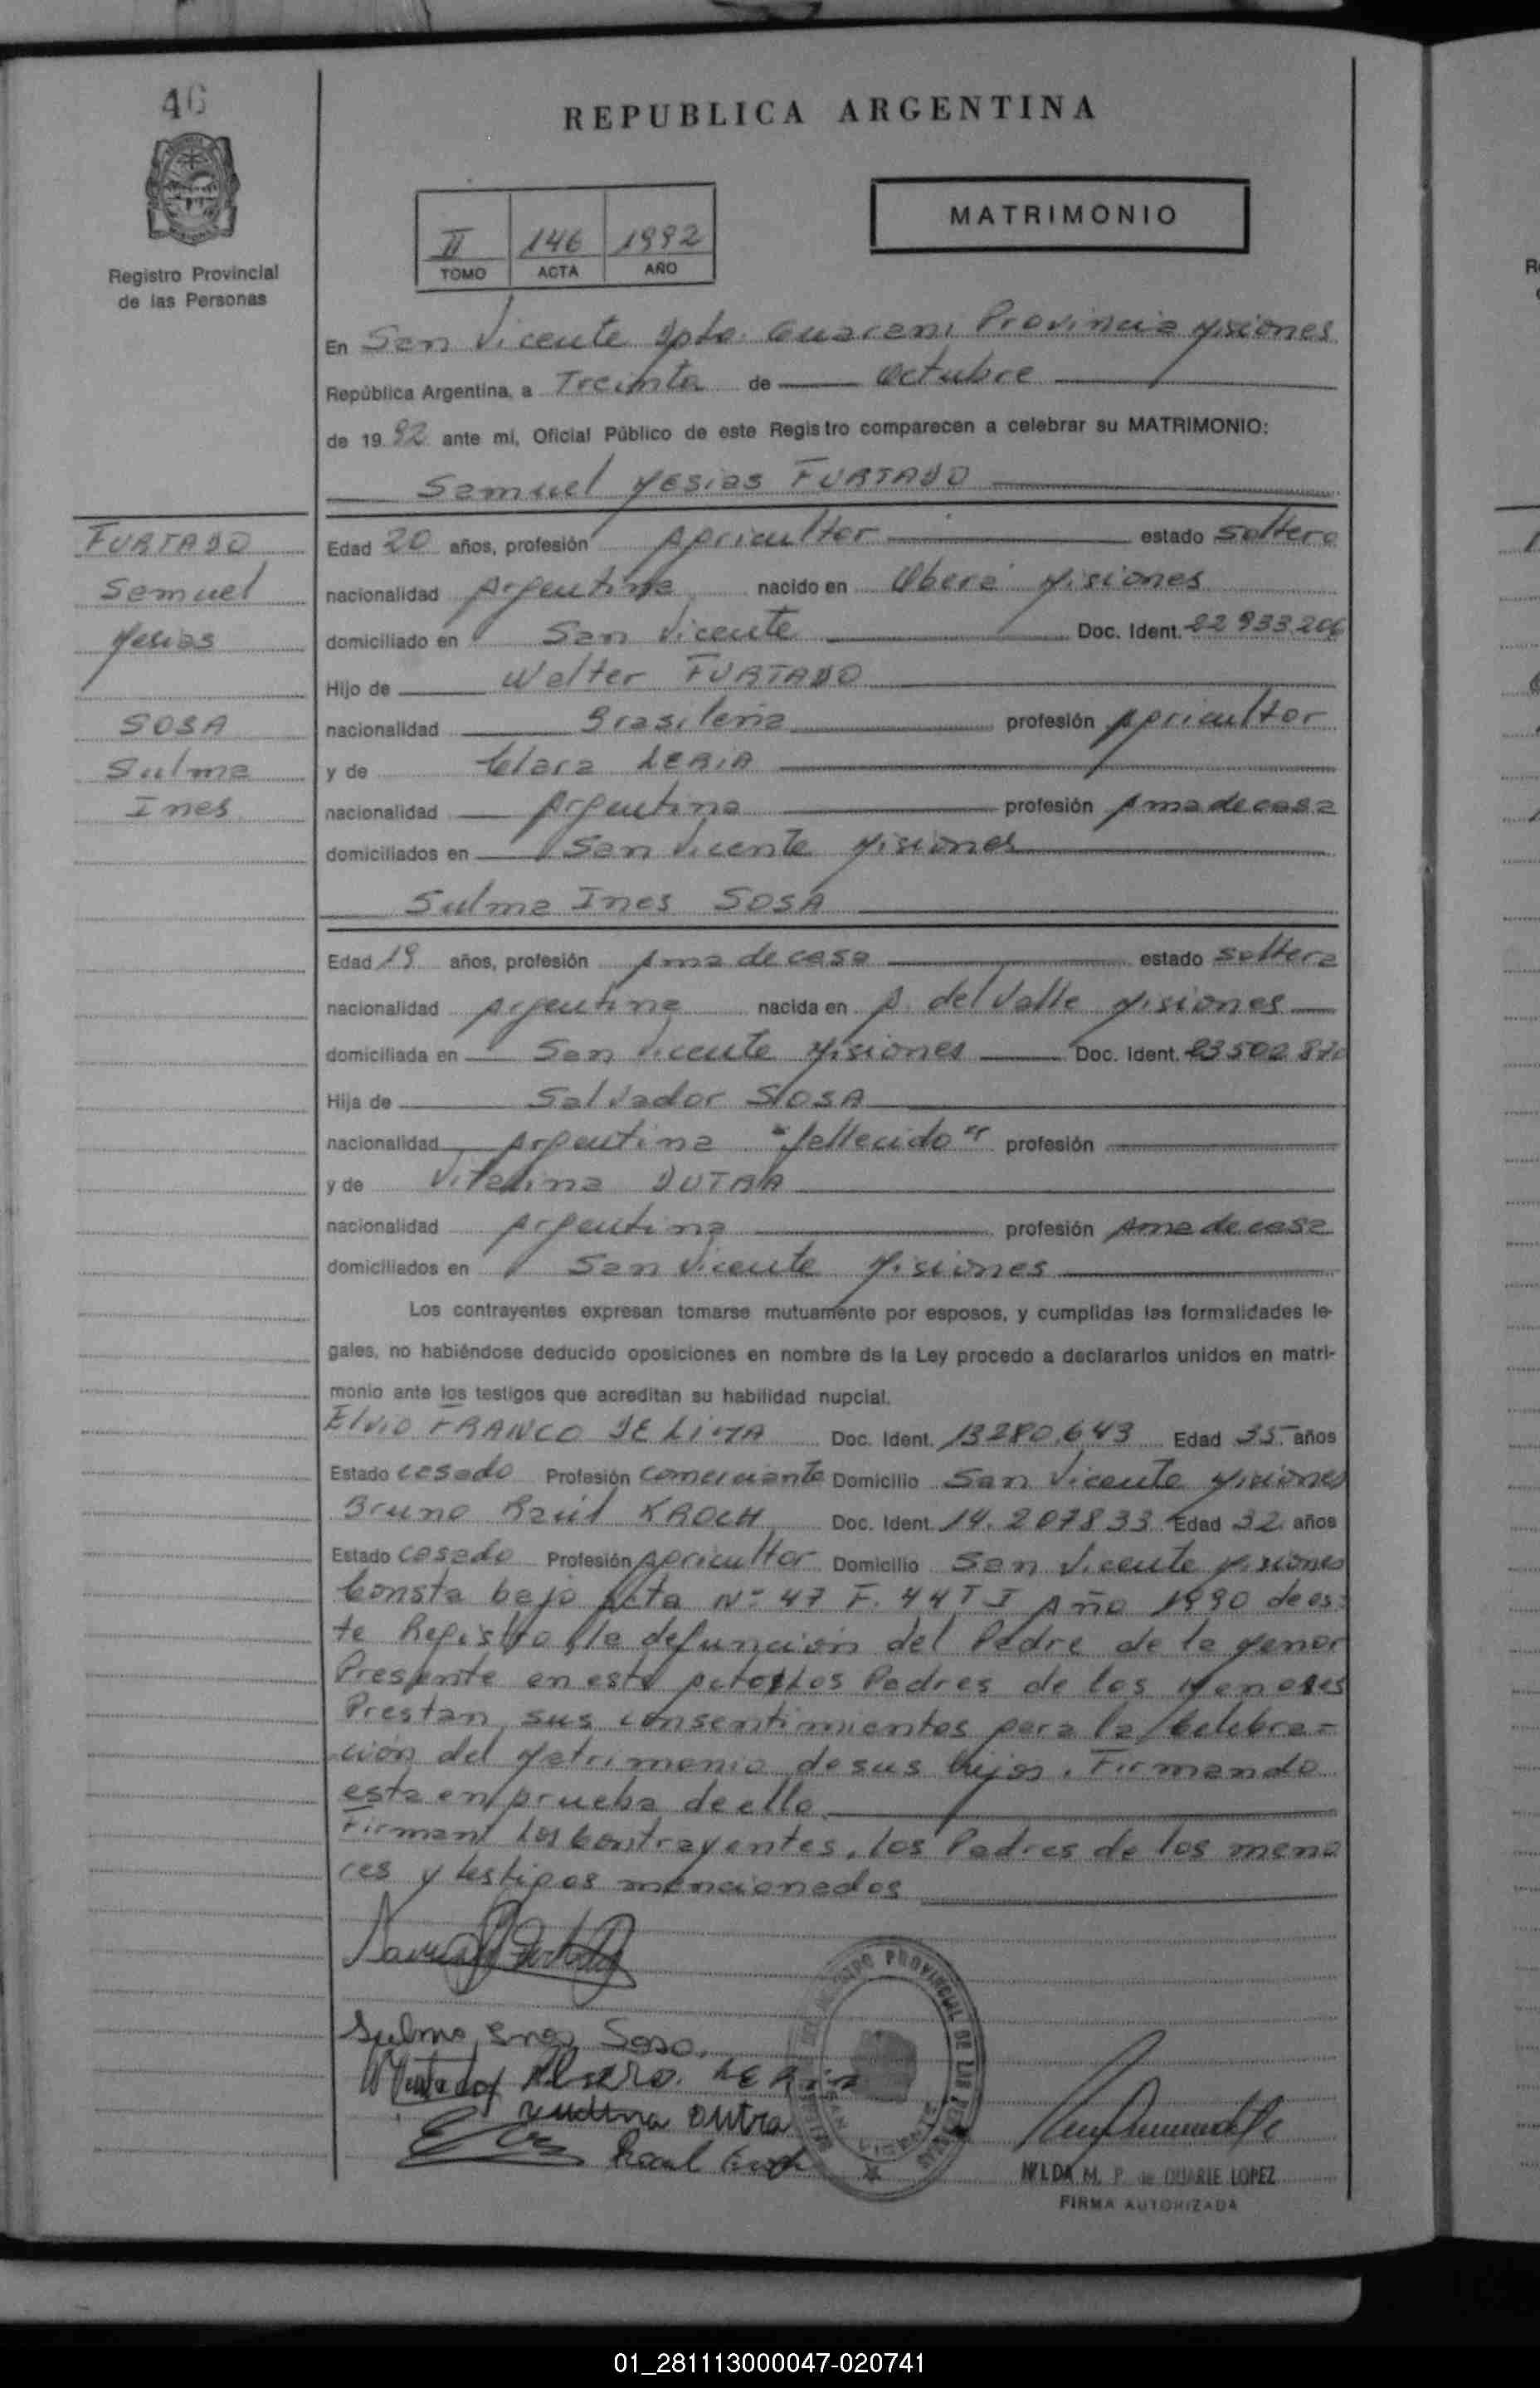 46
REPUBLICA ARGENTINA
MATRIMONIO
II 146 1992
TOMO ACTA AÑO
Registro Provincial
de las Personas
En San Vicente Dpto. Guarani Provincia Misiones
República Argentina, a Treinta de Octubre
de 1992 ante mí, Oficial Público de este Registro comparecen a celebrar su MATRIMONIO:
Samuel Mesias FURTADO
FURTADO
Samuel
Mesias
SOSA
Sulma
Ines
Edad 20 años, profesión Agricultor estado soltero
nacionalidad Argentina nacido en Oberá Misiones
domiciliado en San Vicente Doc. Ident. 22 933.206
Hijo de Walter FURTADO
nacionalidad Brasileña profesión Agricultor
y de Clara LERIA
nacionalidad Argentina profesión Ama de casa
domiciliados en San Vicente Misiones
Sulma Ines SOSA
Edad 19 años, profesión Ama de casa estado soltera
nacionalidad Argentina nacida en A. del Valle Misiones
domiciliada en San Vicente Misiones Doc. Ident. 23 502 870
Hija de Salvador SOSA
nacionalidad Argentina "fallecido" profesión
y de Vitalina DUTRA
nacionalidad Argentina profesión Ama de casa
domiciliados en San Vicente Misiones
Los contrayentes expresan tomarse mutuamente por esposos, y cumplidas las formalidades le-
gales, no habiéndose deducido oposiciones en nombre de la Ley procedo a declararlos unidos en matri-
monio ante los testigos que acreditan su habilidad nupcial.
Elvio FRANCO DE LIMA Doc. Ident. 13280.643 Edad 35 años
Estado casado Profesión comerciante Domicilio San Vicente Misiones
Bruno Raúl KROCH Doc. Ident. 14.207833 Edad 32 años
Estado casado Profesión Agricultor Domicilio San Vicente Misiones
Consta bajo Acta Nº 47 F. 44 T I Año 1990 de es-
te Registro la defunción del Padre de la menor
Presente en este acto los Padres de los Menores
Prestan sus consentimientos para la Celebra=
ción del Matrimonio de sus hijos. Firmando
esta en prueba de ello
Firman los Contrayentes, los Padres de los meno
res y testigos mencionados
Sulma Ines Sosa.
LERIA
Dutra
Raul
REGISTRO PROVINCIAL DE LAS PERSONAS
SAN VICENTE
NILDA M. P. de DUARTE LOPEZ
FIRMA AUTORIZADA
01_281113000047-020741